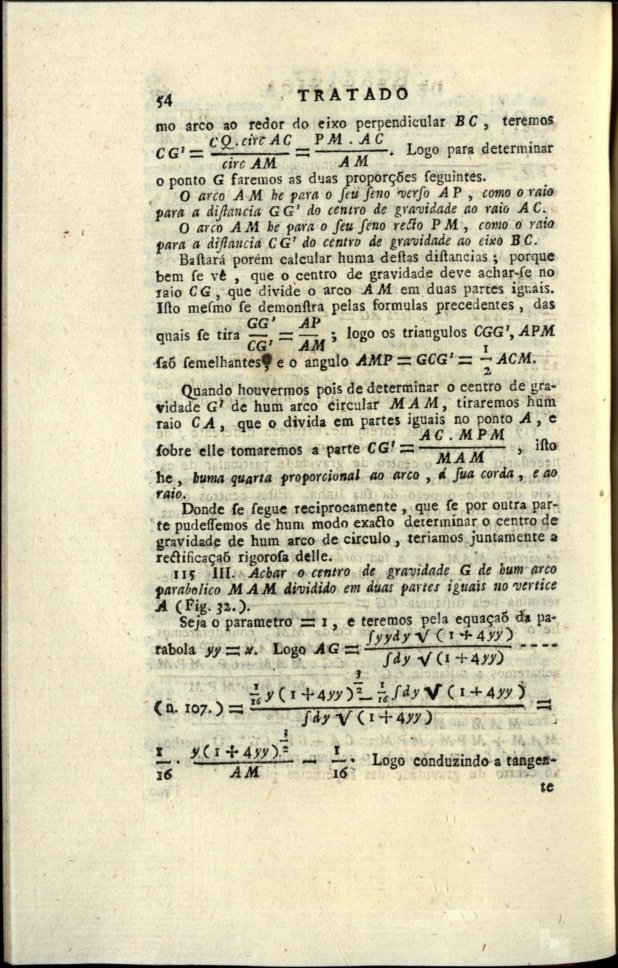 54 TRATADO
mo arco ao redor do eixo perpendicular B C , teremos
C G' = (C Q . circ A C) / (circ A M) = (P M . A C) / (A M). Logo para determinar
o ponto G faremos as duas proporções ſeguintes.
O arco A M he para o ſeu ſeno verſo A P , como o raio
para a diſtancia G G' do centro de gravidade ao raio A C.
O arco A M he para o ſeu ſeno recto P M , como o raio
para a diſtancia C G' do centro de gravidade ao eixo B C.
Baſtará porém calcular huma deſtas diſtancias ; porque
bem ſe vê , que o centro de gravidade deve achar-ſe no
raio C G , que divide o arco A M em duas partes iguais.
Iſto meſmo ſe demonſtra pelas formulas precedentes , das
quais ſe tira GG' / CG' = AP / AM ; logo os triangulos CGG', APM
ſaõ ſemelhantes, e o angulo AMP = GCG' = 1/2 ACM.
Quando houvermos pois de determinar o centro de gra-
vidade G' de hum arco circular M A M, tiraremos hum
raio C A , que o divida em partes iguais no ponto A , e
ſobre elle tomaremos a parte CG' = (A C . M P M) / (M A M) , iſto
he , huma quarta proporcional ao arco , á ſua corda , e ao
raio.
Donde ſe ſegue reciprocamente , que ſe por outra par-
te pudeſſemos de hum modo exacto determinar o centro de
gravidade de hum arco de circulo , teriamos juntamente a
rectificaçaõ rigoroſa delle.
115 III. Achar o centro de gravidade G de hum arco
parabolico M A M dividido em duas partes iguais no vertice
A (Fig. 32.).
Seja o parametro = 1 , e teremos pela equaçaõ da pa-
rabola yy = x. Logo AG = ſyydy √ (1 + 4yy) / ſdy √ (1 + 4yy) - - - -
(n. 107.) = (1/16 y (1 + 4yy)^3/2 — 1/16 ſdy √ (1 + 4yy)) / ſdy √ (1 + 4yy) =
1/16 . y (1 + 4yy)^3/2 / A M — 1/16 . Logo conduzindo a tangen-
te